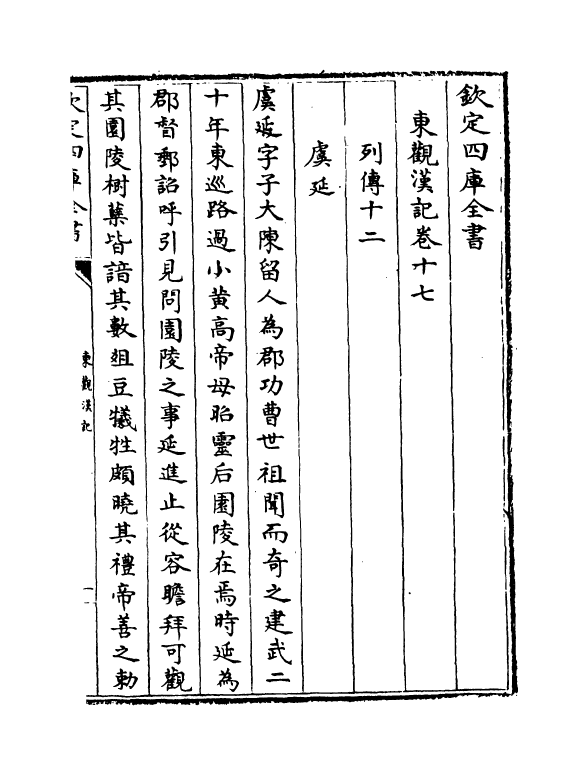 欽定四庫全書
東觀漢記卷十七
列傳十二
虞延
虞延字子大陳留人為郡功曹世祖聞而奇之建武二
十年東巡路過小黄高帝母昭靈后園陵在焉時延為
郡督郵詔呼引見問園陵之事延進止從容瞻拜可觀
其園陵樹蘖皆諳其數俎豆犧牲頗曉其禮帝善之勅
欽定四庫全書
東觀漢記
一